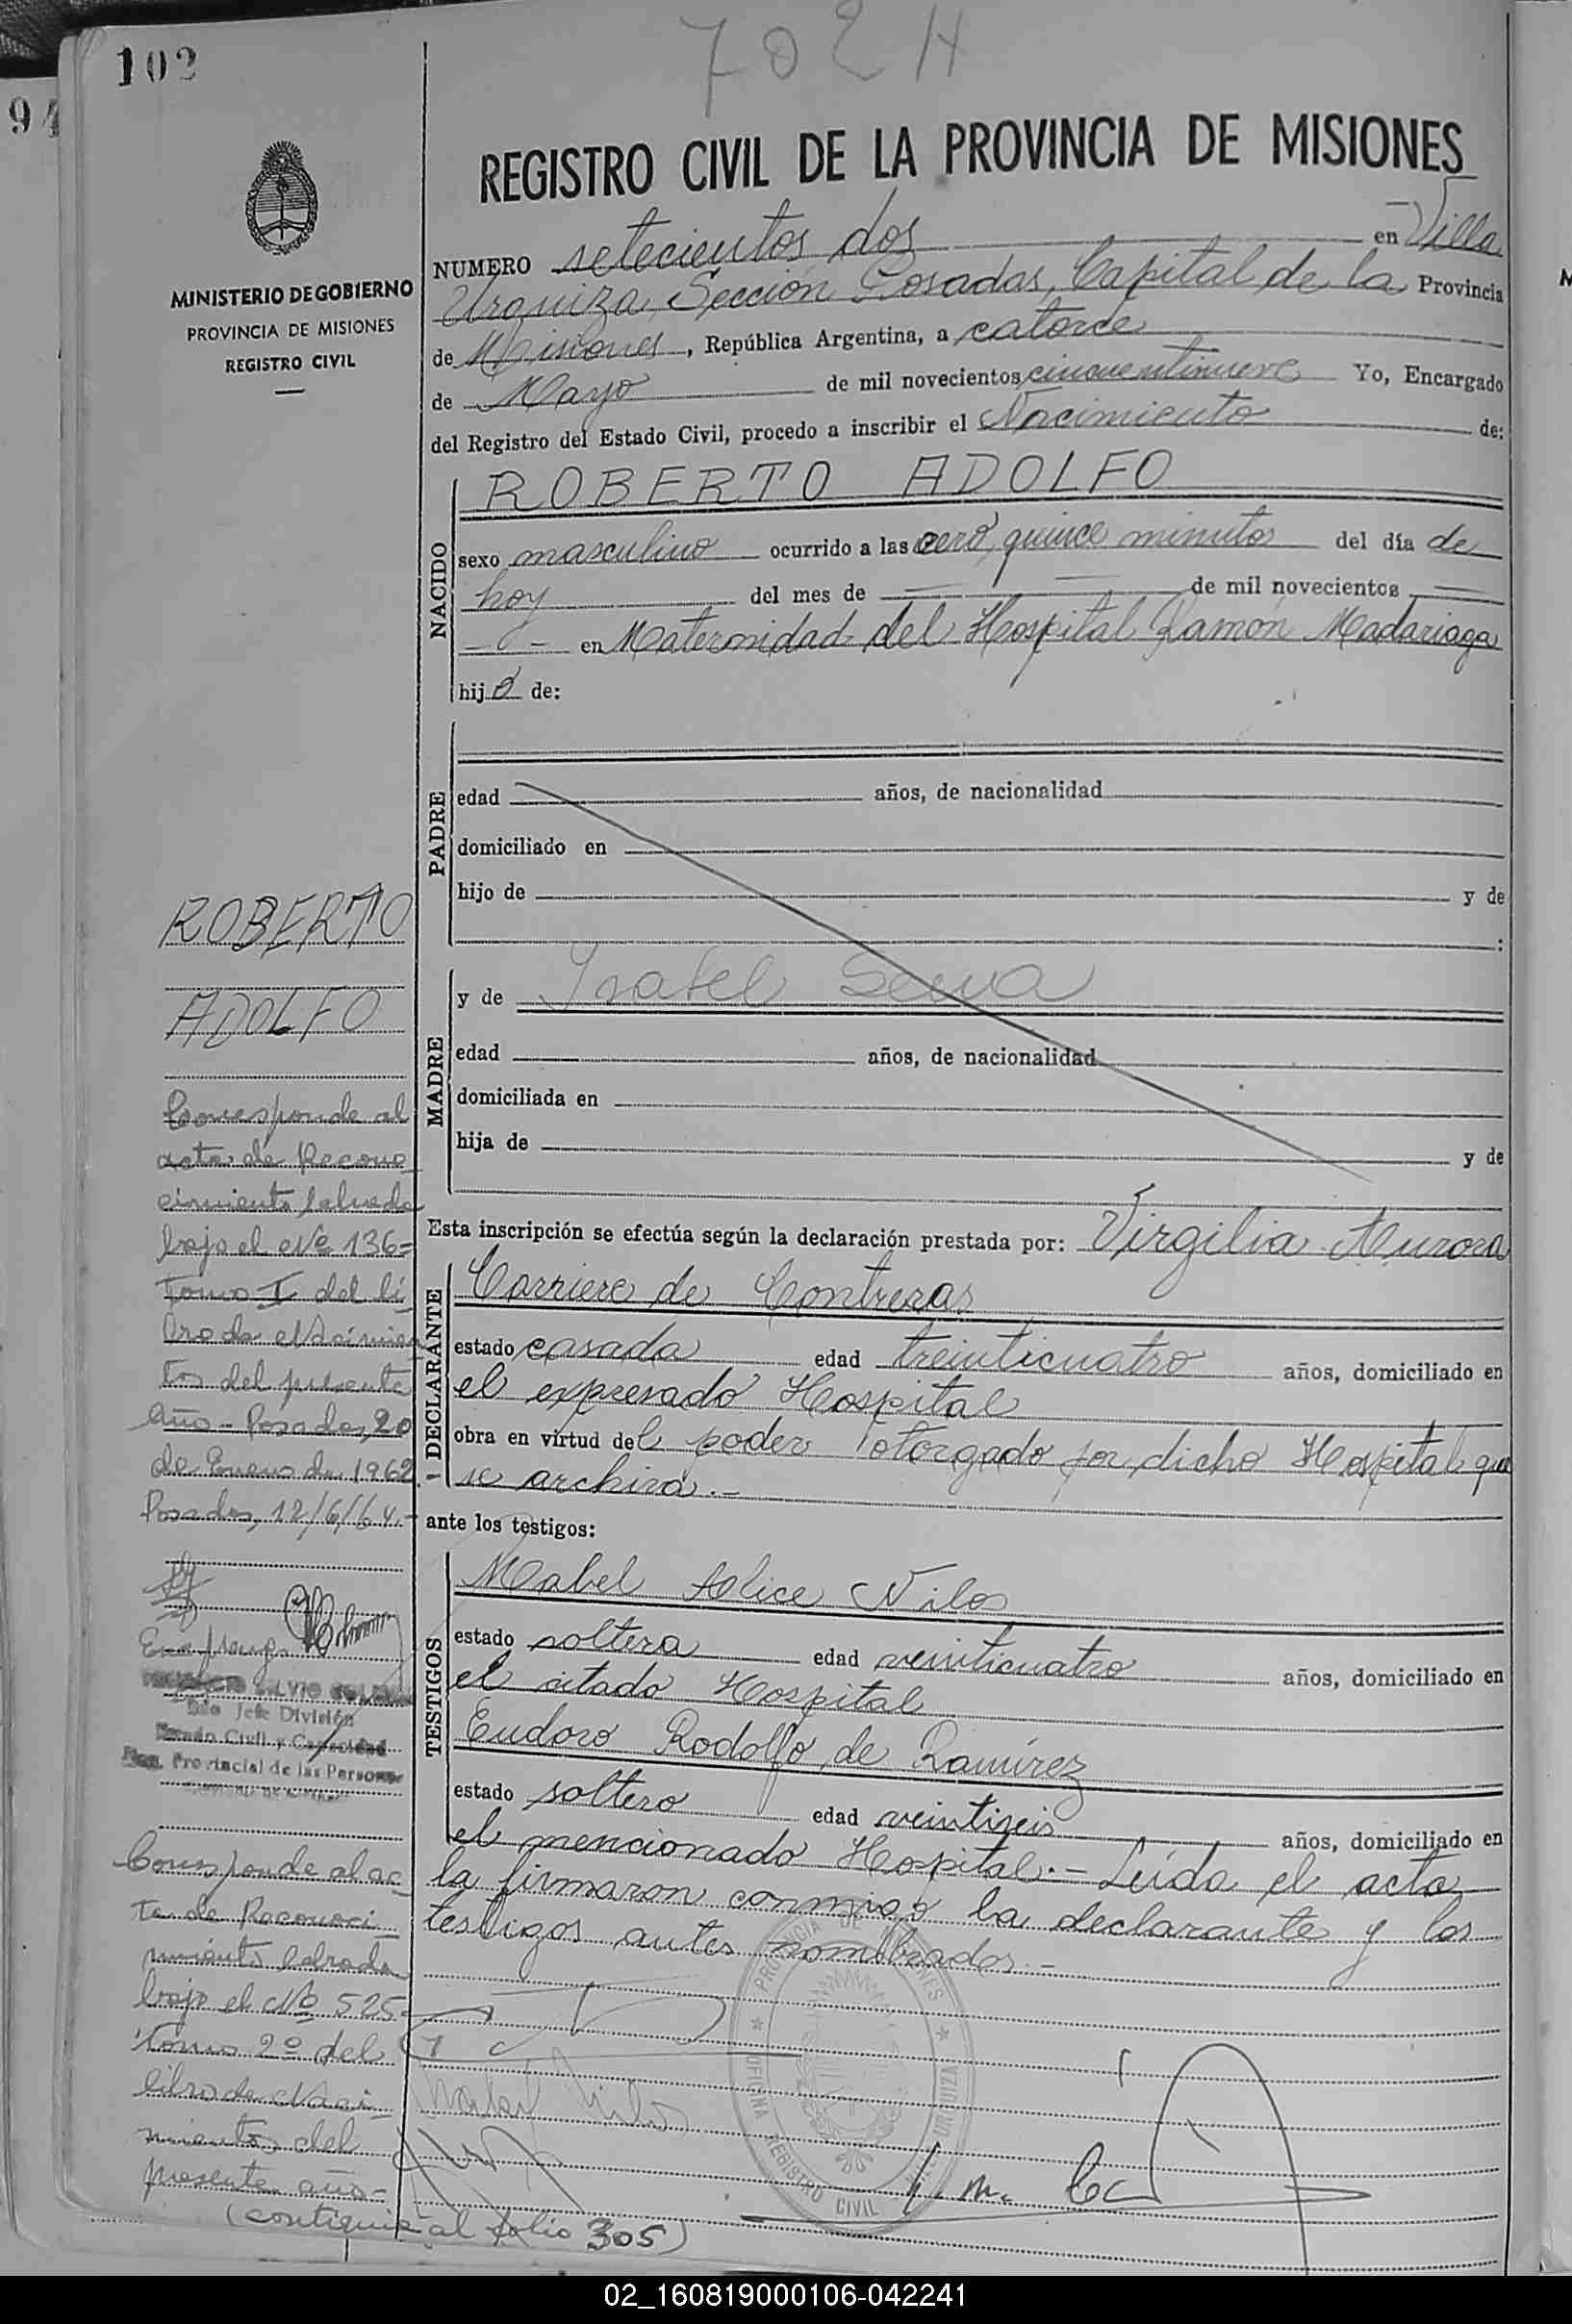 102
702 H
94
REGISTRO CIVIL DE LA PROVINCIA DE MISIONES
MINISTERIO DE GOBIERNO
PROVINCIA DE MISIONES
REGISTRO CIVIL
NUMERO setecientos dos en Villa
Urquiza, Sección Posadas, Capital de la Provincia
de Misiones, República Argentina, a catorce
de Mayo de mil novecientos cincuentinueve Yo, Encargado
del Registro del Estado Civil, procedo a inscribir el Nacimiento de:
NACIDO
ROBERTO ADOLFO
sexo masculino ocurrido a las cero, quince minutos del día de
hoy del mes de — — de mil novecientos —
— — en Maternidad del Hospital Ramón Madariaga
hijo de:
PADRE
edad años, de nacionalidad
domiciliado en
hijo de y de
:
MADRE
y de Isabel
edad años, de nacionalidad
domiciliada en
hija de y de
Esta inscripción se efectúa según la declaración prestada por: Virgilia Aurora
DECLARANTE
Carriere de Contreras
estado casada edad treinticuatro años, domiciliado en
el expresado Hospital
obra en virtud del poder otorgado por dicho Hospital que
se archiva.-
ante los testigos:
TESTIGOS
Mabel Alice Nilos
estado soltera edad veinticuatro años, domiciliado en
el citado Hospital
Eudoro Rodolfo de Ramírez
estado soltero edad veintiseis años, domiciliado en
el mencionado Hospital.- Leída el acta
la firmaron conmigo la declarante y los
testigos antes nombrados.-
ROBERTO
ADOLFO
Corresponde al
acta de Recono-
cimiento labrada
bajo el Nº 136=
Tomo I del li-
bro de Nacimien-
tos del presente
año.- Posadas, 20
de Enero de 1962
Posadas, 12/6/64.-
Jefe División
Estado Civil y Capacidad
Provincial de las Personas
Corresponde al ac-
ta de Reconoci-
miento labrada
bajo el Nº 525-
Tomo 2º del
libro de Naci-
mientos del
presente año-
(continua al folio 305)
PROVINCIA DE MISIONES
OFICINA REGISTRO CIVIL
VILLA URQUIZA
02_160819000106-042241